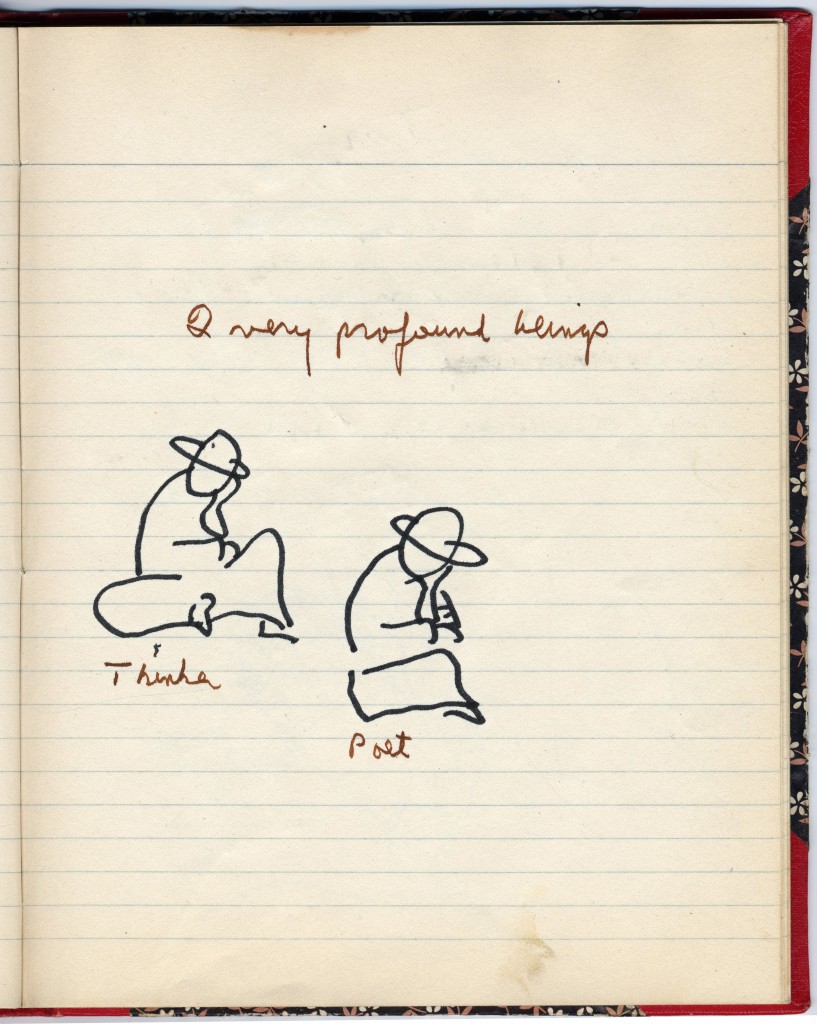 2 very profound beings
Thinker
Poet